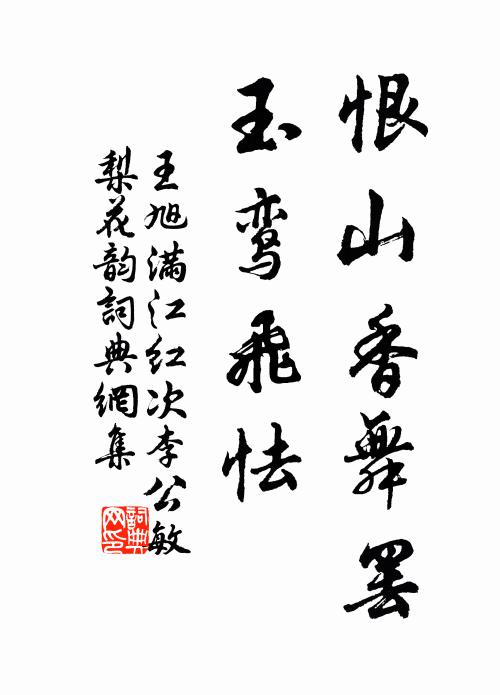 恨山香舞罢
玉鸾飞怯
王旭满江红次李公敏
梨花韵詞典網集
詞典网印